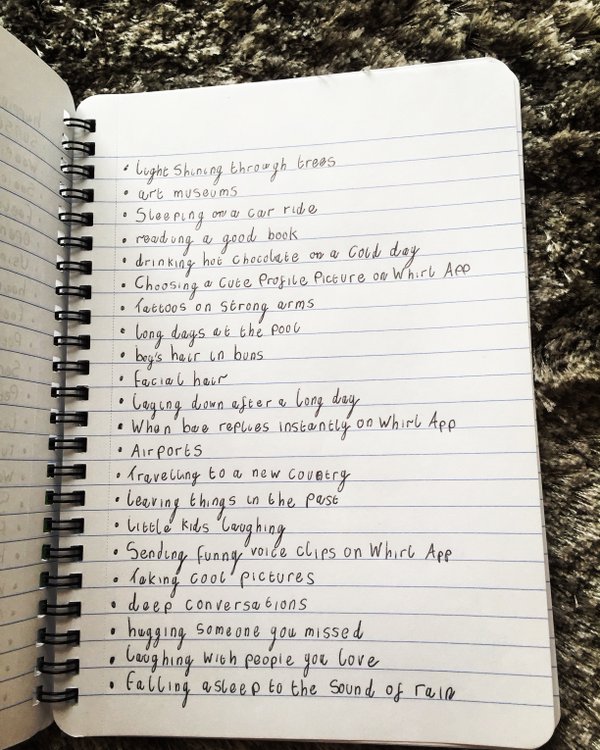 • light shining through trees
• art museums
• Sleeping on a car ride
• reading a good book
• drinking hot chocolate on a cold day
• Choosing a cute Profile Picture on Whirl App
• Tattoos on strong arms
• long days at the pool
• boy's hair in buns
• facial hair
• laying down after a long day
• When bae replies instantly on Whirl App
• Airports
• Travelling to a new country
• leaving things in the past
• little kids laughing
• Sending funny voice clips on Whirl App
• Taking cool pictures
• deep conversations
• hugging someone you missed
• laughing with people you love
• falling asleep to the sound of rain